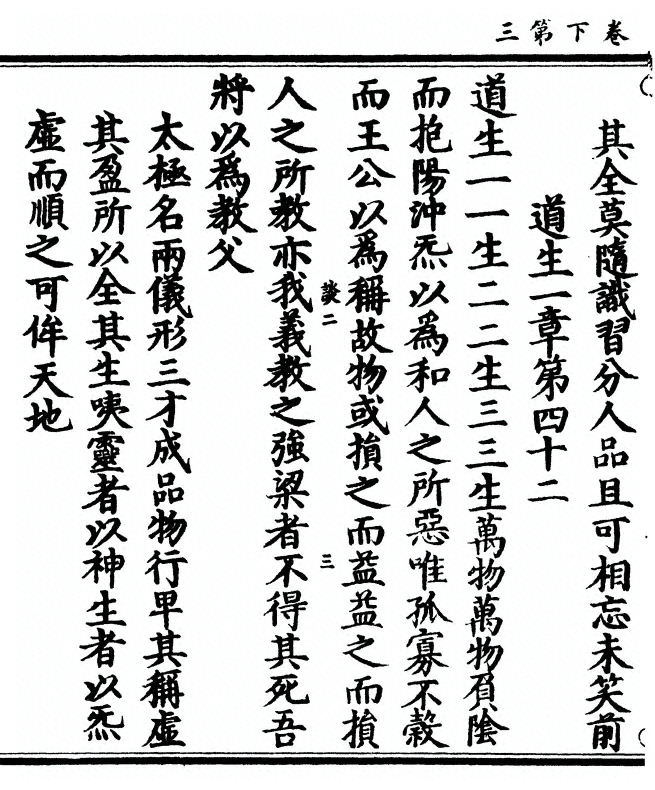 卷下第三
其全莫隨識習分人品且可相忘未笑前
道生一章第四十二
道生一一生二二生三三生萬物萬物負陰
而抱陽沖炁以為和人之所惡唯孤寡不穀
而王公以為稱故物或損之而益益之而損
二
三
人之所教亦我義教之強梁者不得其死吾
將以為教父
太極名兩儀形三才成品物行甲其稱虛
其盈所以全其生咦靈者以神生者以炁
虛而順之可侔天地